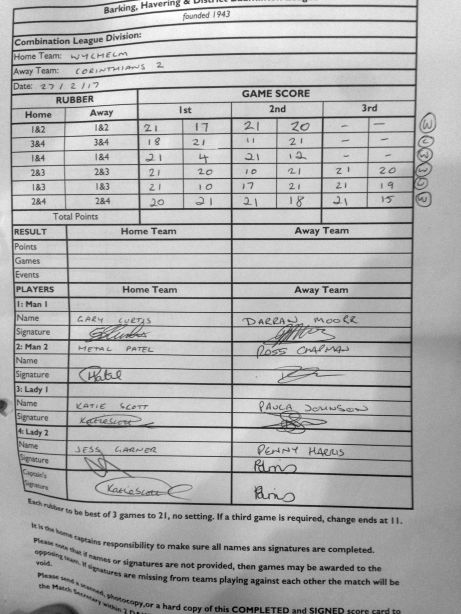 Barking, Havering & District Badminton League
founded 1943
Combination League Division:
Home Team: WYCHELM
Away Team: CORINTHIANS 2
Date: 27/2/17
RUBBER GAME SCORE
Home Away 1st 2nd 3rd
1&2 1&2 21 17 21 20 - -
3&4 3&4 18 21 11 21 - -
1&4 1&4 21 4 21 12 - -
2&3 2&3 21 20 10 21 21 20
1&3 1&3 21 10 17 21 21 19
2&4 2&4 20 21 21 18 21 15
Total Points
RESULT Home Team Away Team
Points
Games
Events
PLAYERS Home Team Away Team
1: Man 1
Name GARY CURTIS DARRAN MOORE
Signature
2: Man 2 METAL PATEL ROSS CHAPMAN
Name
Signature Patel
3: Lady 1
Name KATIE SCOTT PAULA JOHNSON
Signature KatieScott
4: Lady 2
Name JESS GARNER PENNY HARRIS
Signature
Captain's
Signature KatieScott
Each rubber to be best of 3 games to 21, no setting. If a third game is required, change ends at 11.
It is the home captains responsibility to make sure all names ans signatures are completed.
Please note that if names or signatures are not provided, then games may be awarded to the
opposing team. If signatures are missing from teams playing against each other the match will be
void.
Please send a scanned, photocopy, or a hard copy of this COMPLETED and SIGNED score card to
the Match Secretary within